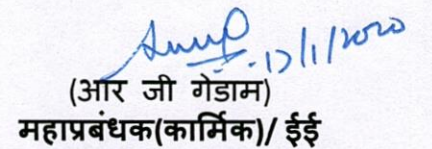 17/1/2020
(आर जी गेडाम)
महाप्रबंधक(कार्मिक)/ ईई